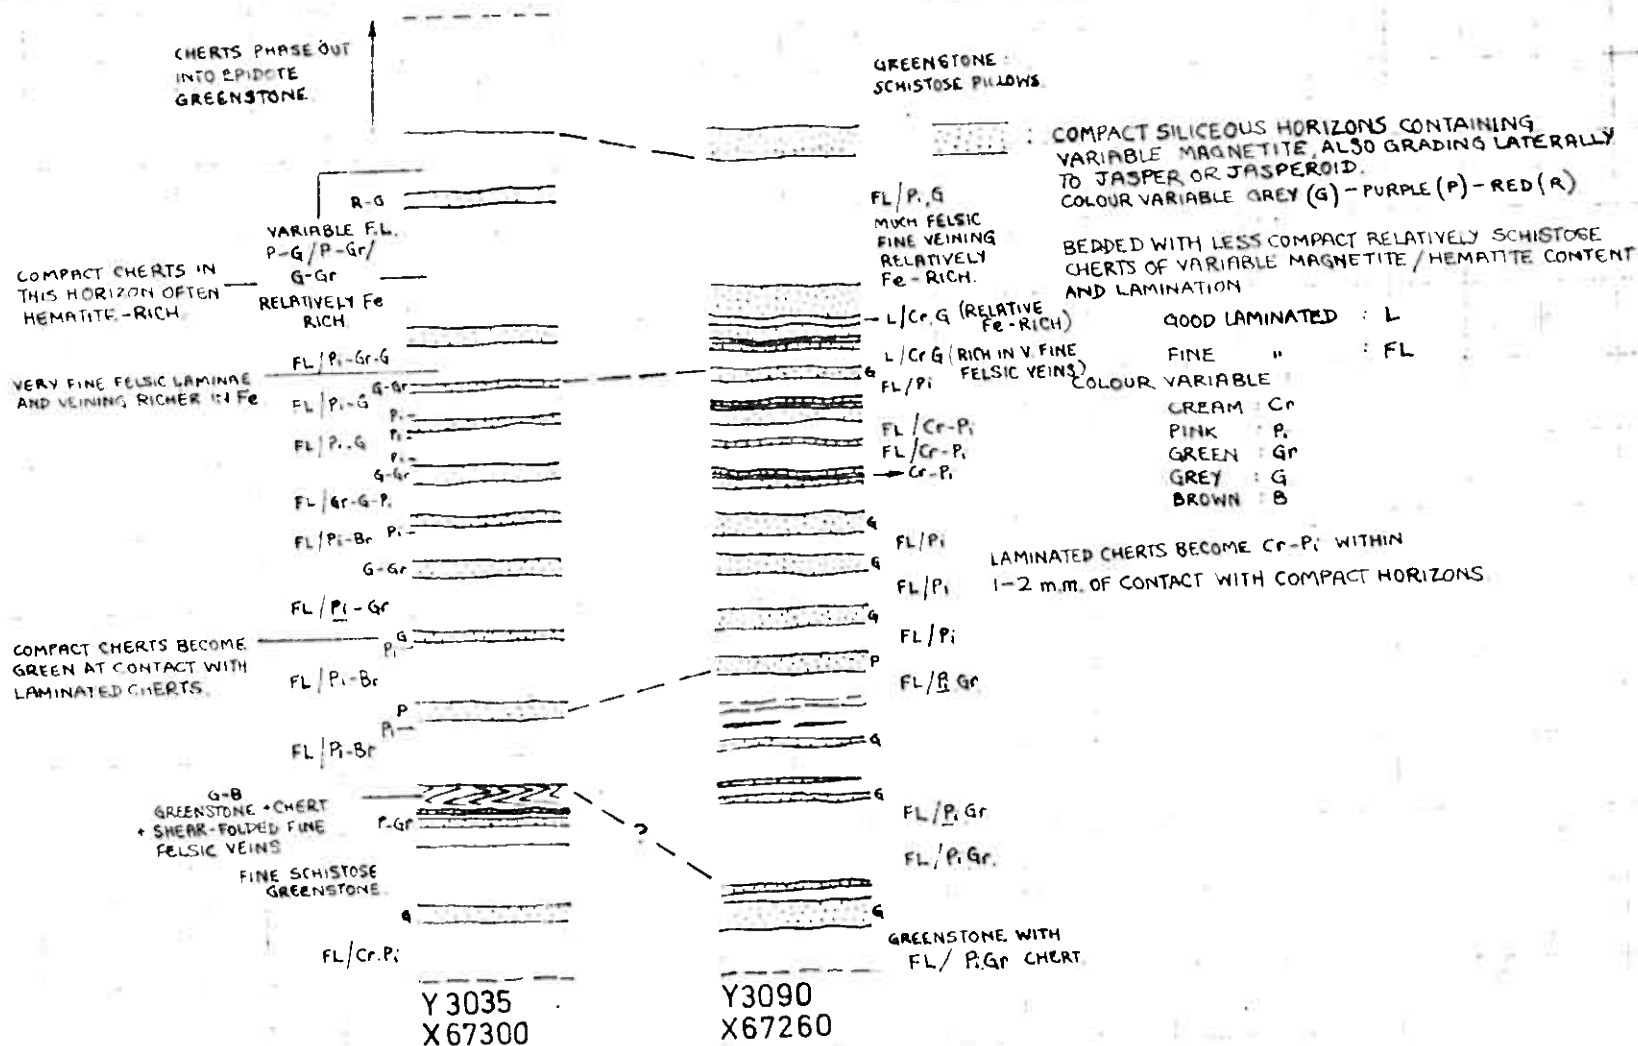 CHERTS PHASE OUT
INTO EPIDOTE
GREENSTONE.
R-G
VARIABLE F.L.
P-G/P-Gr/
G-Gr
RELATIVELY Fe
RICH
COMPACT CHERTS IN
THIS HORIZON OFTEN
HEMATITE-RICH
FL/Pi-Gr-G
VERY FINE FELSIC LAMINAE
AND VEINING RICHER IN Fe
G-Gr
FL/Pi-G
Pi
FL/Pi.G
Pi
Pi
G-Gr
FL/Gr-G-Pi
FL/Pi-Br
Pi
G-Gr
FL/Pi-Gr
COMPACT CHERTS BECOME
GREEN AT CONTACT WITH
LAMINATED CHERTS.
G
Pi
FL/Pi-Br
P
Pi
FL/Pi-Br
G-B
GREENSTONE + CHERT
+ SHEAR-FOLDED FINE
FELSIC VEINS
P-Gr
FINE SCHISTOSE
GREENSTONE.
G
FL/Cr.Pi
Y 3035
X67300
?
GREENSTONE :
SCHISTOSE PILLOWS.
FL/Pi,G
MUCH FELSIC
FINE VEINING
RELATIVELY
Fe-RICH.
L/Cr.G (RELATIVE
Fe-RICH)
L/Cr G (RICH IN V. FINE
FELSIC VEINS)
G
FL/Pi
FL/Cr-Pi
FL/Cr-Pi
Cr-Pi
G
FL/Pi
G
FL/Pi
G
FL/Pi
P
FL/Pi Gr
G
G
FL/Pi Gr
FL/Pi Gr.
G
GREENSTONE WITH
FL/ Pi Gr CHERT
Y3090
X67260
: COMPACT SILICEOUS HORIZONS CONTAINING
VARIABLE MAGNETITE, ALSO GRADING LATERALLY
TO JASPER OR JASPEROID.
COLOUR VARIABLE GREY (G) - PURPLE (P) - RED (R)
BEDDED WITH LESS COMPACT RELATIVELY SCHISTOSE
CHERTS OF VARIABLE MAGNETITE / HEMATITE CONTENT
AND LAMINATION
GOOD LAMINATED : L
FINE " : FL
COLOUR VARIABLE
CREAM : Cr
PINK : Pi
GREEN : Gr
GREY : G
BROWN : B
LAMINATED CHERTS BECOME Cr-Pi WITHIN
1-2 m.m. OF CONTACT WITH COMPACT HORIZONS